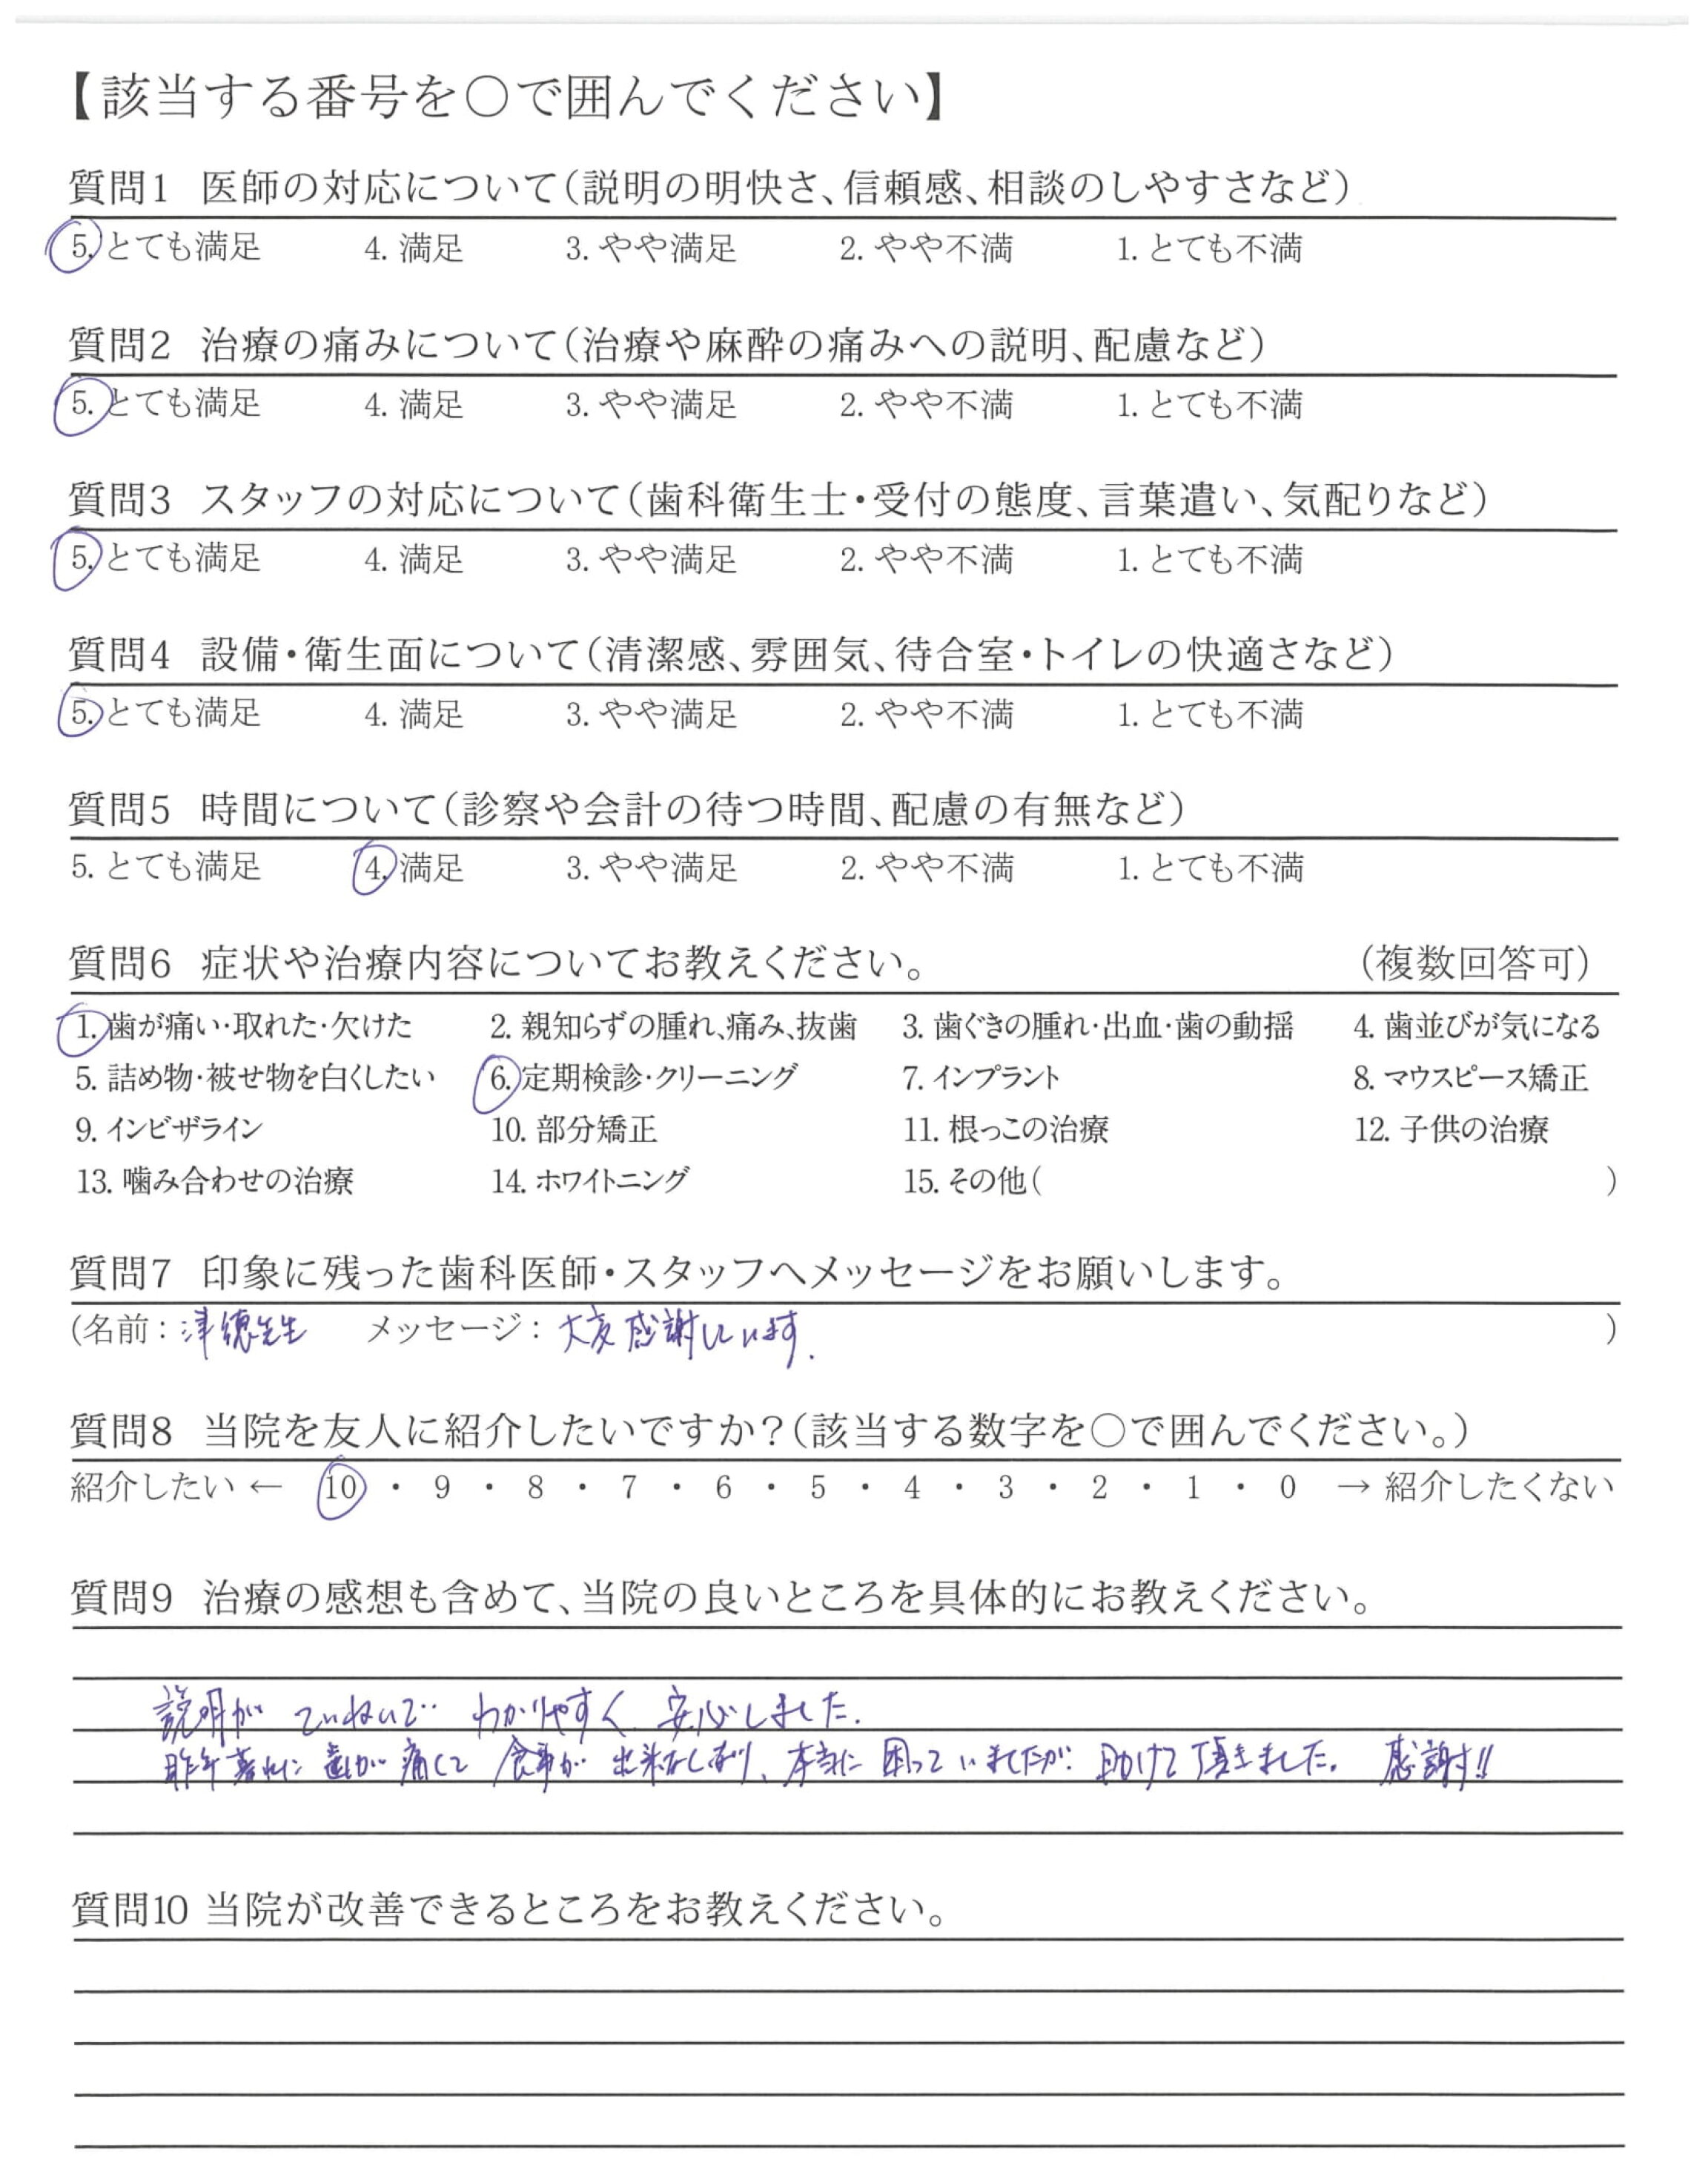 【該当する番号を○で囲んでください】
質問1 医師の対応について(説明の明快さ、信頼感、相談のしやすさなど)
5. とても満足 4. 満足 3. やや満足 2. やや不満 1. とても不満
質問2 治療の痛みについて(治療や麻酔の痛みへの説明、配慮など)
5. とても満足 4. 満足 3. やや満足 2. やや不満 1. とても不満
質問3 スタッフの対応について(歯科衛生士・受付の態度、言葉遣い、気配りなど)
5. とても満足 4. 満足 3. やや満足 2. やや不満 1. とても不満
質問4 設備・衛生面について(清潔感、雰囲気、待合室・トイレの快適さなど)
5. とても満足 4. 満足 3. やや満足 2. やや不満 1. とても不満
質問5 時間について(診察や会計の待つ時間、配慮の有無など)
5. とても満足 4. 満足 3. やや満足 2. やや不満 1. とても不満
質問6 症状や治療内容についてお教えください。 (複数回答可)
1. 歯が痛い・取れた・欠けた 2. 親知らずの腫れ、痛み、抜歯 3. 歯ぐきの腫れ・出血・歯の動揺 4. 歯並びが気になる
5. 詰め物・被せ物を白くしたい 6. 定期検診・クリーニング 7. インプラント 8. マウスピース矯正
9. インビザライン 10. 部分矯正 11. 根っこの治療 12. 子供の治療
13. 噛み合わせの治療 14. ホワイトニング 15. その他( )
質問7 印象に残った歯科医師・スタッフへメッセージをお願いします。
(名前: 津徳先生 メッセージ: 大変感謝しています. )
質問8 当院を友人に紹介したいですか?(該当する数字を○で囲んでください。)
紹介したい ← 10 ・ 9 ・ 8 ・ 7 ・ 6 ・ 5 ・ 4 ・ 3 ・ 2 ・ 1 ・ 0 → 紹介したくない
質問9 治療の感想も含めて、当院の良いところを具体的にお教えください。
説明が ていねいで わかりやすく 安心しました.
昨年暮れに 歯が 痛くて 食事が 出来なくなり、本当に 困って いましたが 助けて 頂きました。 感謝!!
質問10 当院が改善できるところをお教えください。